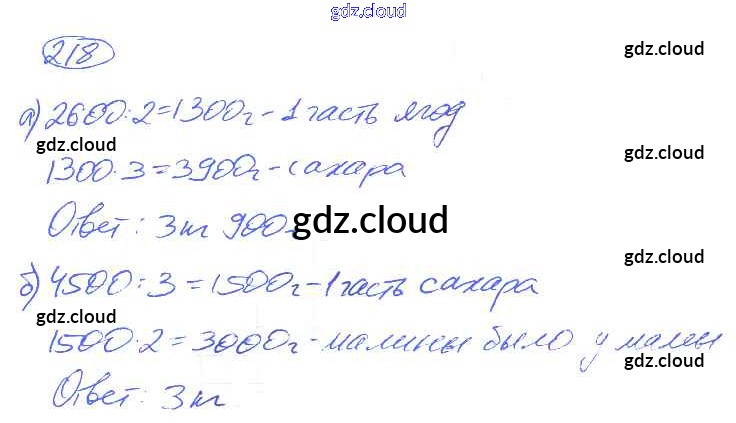 gdz.cloud
218
gdz.cloud
а) 2600:2=1300г-1 часть ягод
gdz.cloud
gdz.cloud
1300·3=3900г-сахара
Ответ: 3кг 900г
gdz.cloud
gdz.cloud
б) 4500:3=1500г-1 часть сахара
gdz.cloud
1500·2=3000г-малины было у мамы
gdz.cloud
Ответ: 3кг
gdz.cloud